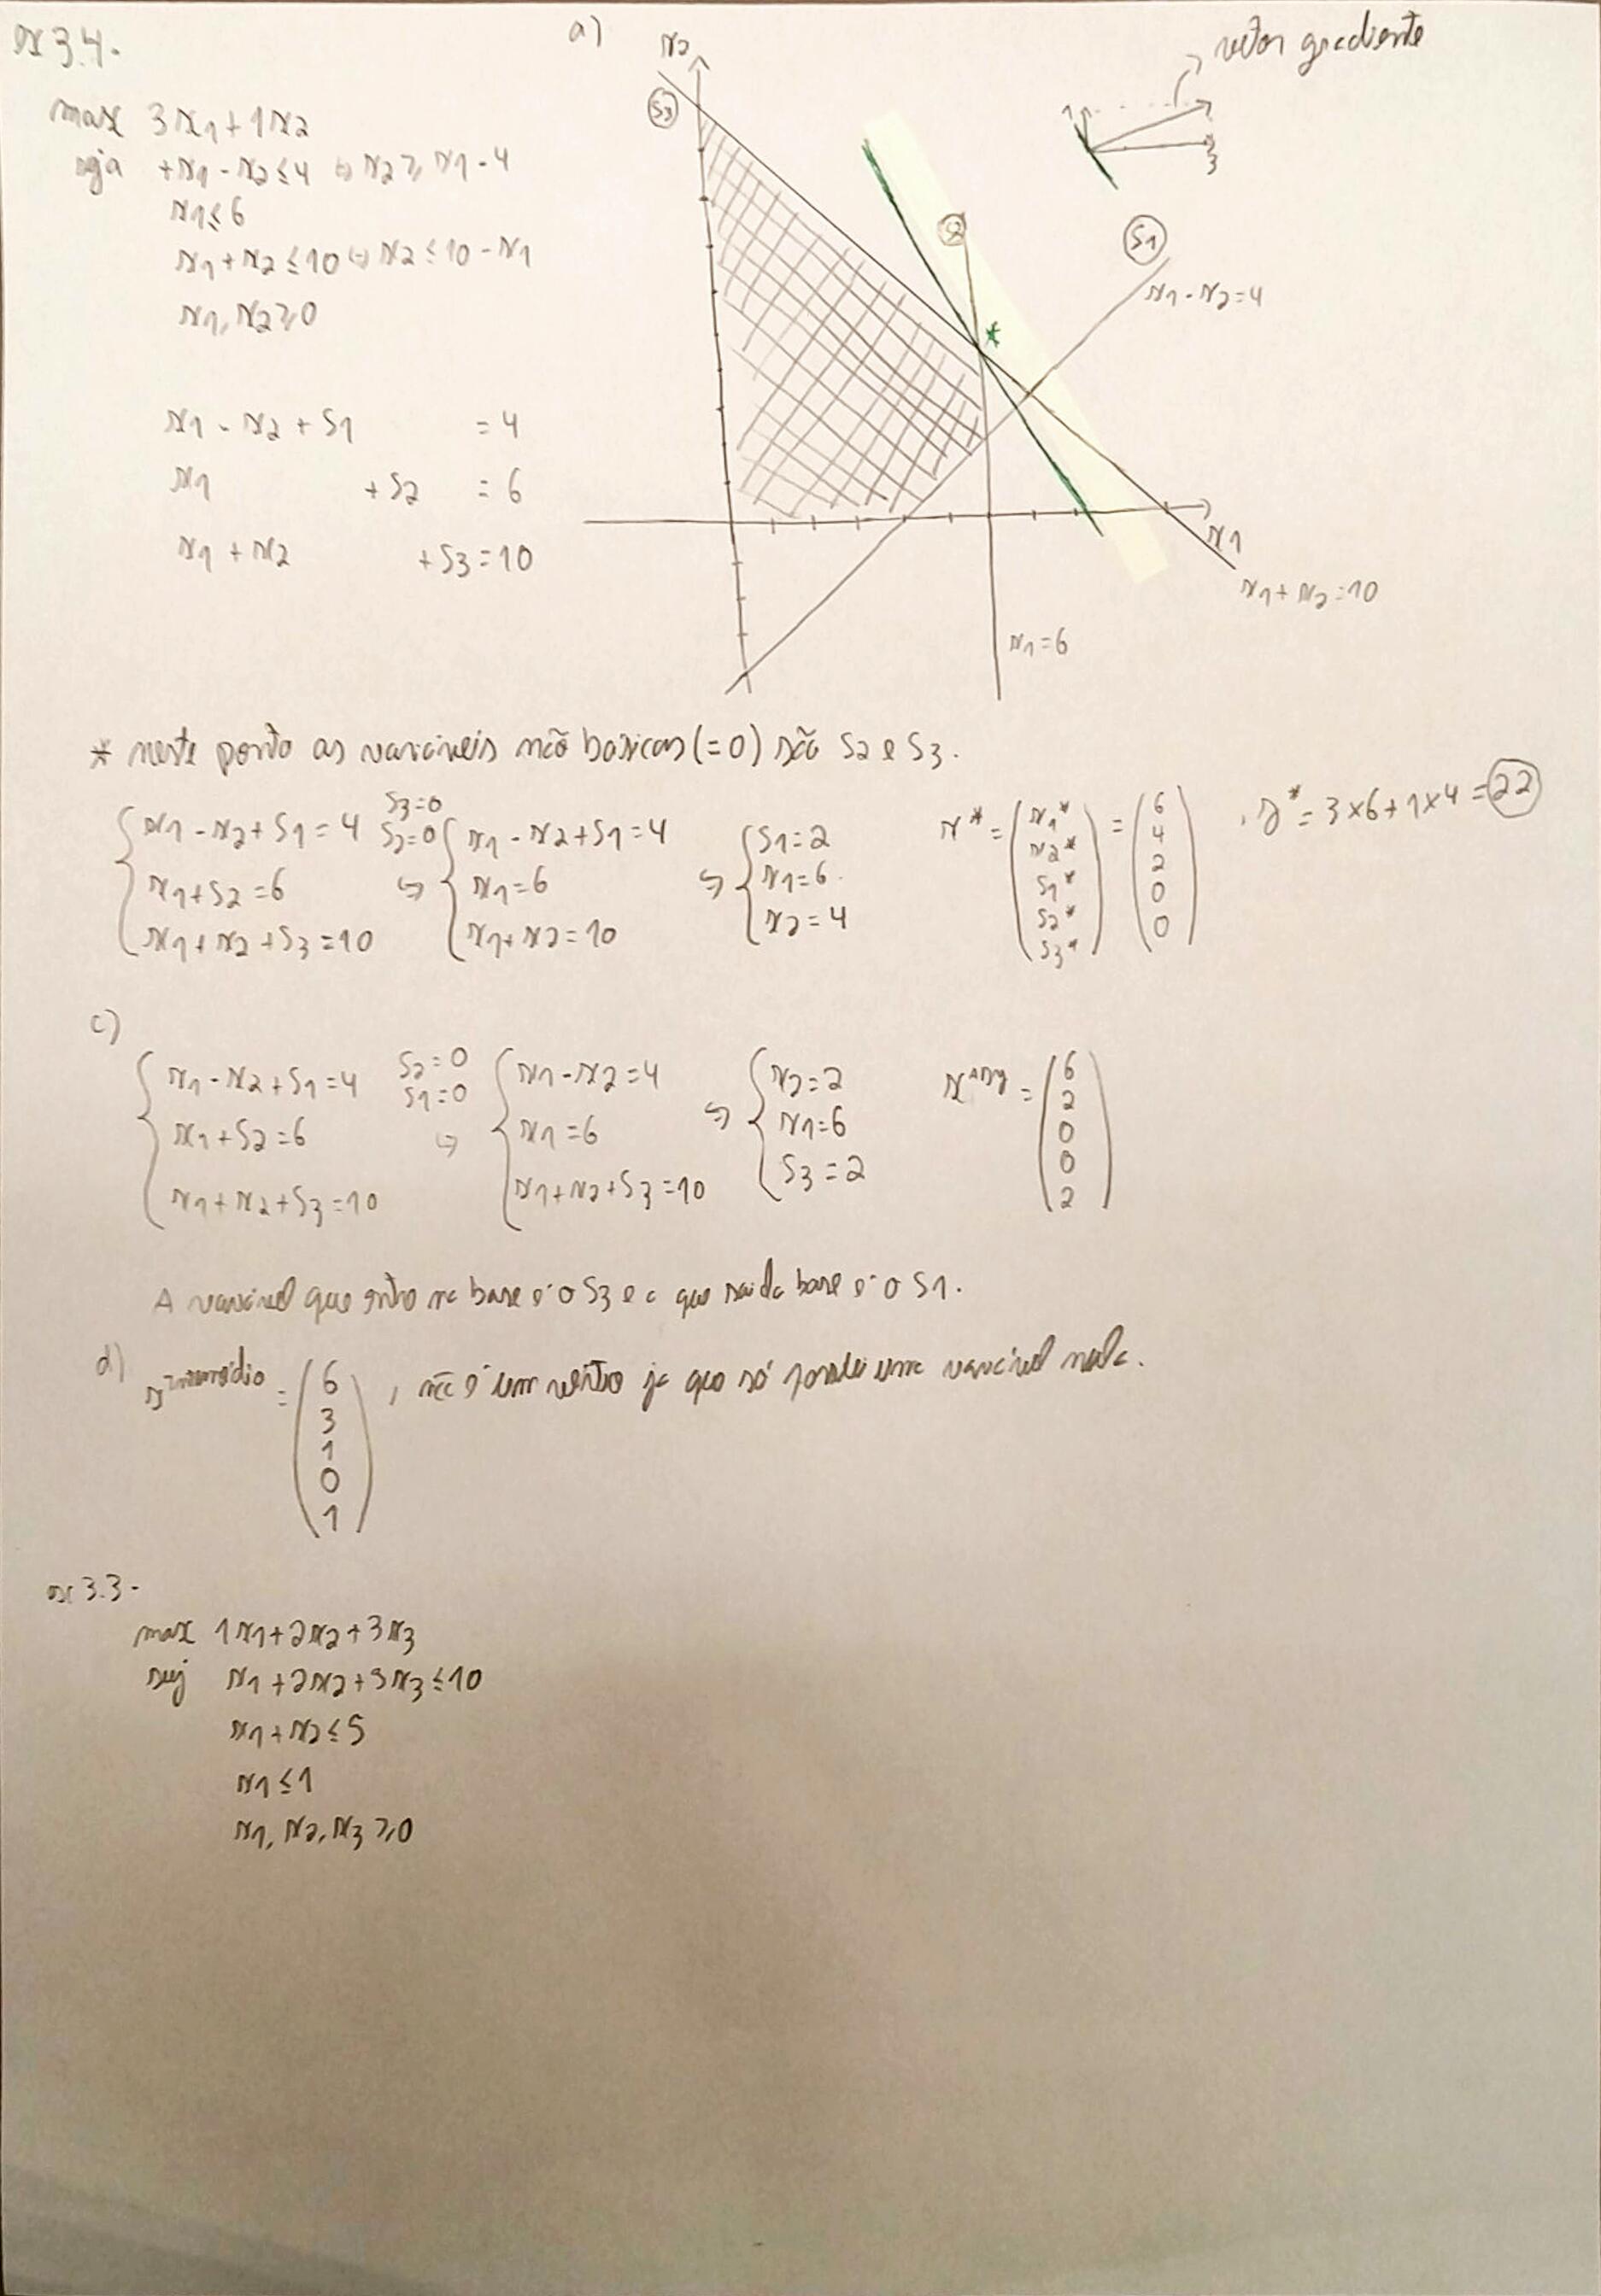 ex 3.4.
max 3x1 + 1x2
suja +x1 - x2 ≤ 4 ⇔ x2 ≥ x1 - 4
x1 ≤ 6
x1 + x2 ≤ 10 ⇔ x2 ≤ 10 - x1
x1, x2 ≥ 0
x1 - x2 + S1 = 4
x1 + S2 = 6
x1 + x2 + S3 = 10
a)
x2
S3
S2
S1
x1 - x2 = 4
x1
x1 + x2 = 10
x1 = 6
*
vetor gradiente
1
3
* neste ponto as variáveis não básicas (=0) são S2 e S3.
x1 - x2 + S1 = 4
x1 + S2 = 6
x1 + x2 + S3 = 10
S3 = 0
S2 = 0
⇔
x1 - x2 + S1 = 4
x1 = 6
x1 + x2 = 10
⇔
S1 = 2
x1 = 6
x2 = 4
x* = (x1* x2* S1* S2* S3*) = (6 4 2 0 0) , z* = 3×6 + 1×4 = 22
c)
x1 - x2 + S1 = 4
x1 + S2 = 6
x1 + x2 + S3 = 10
S2 = 0
S1 = 0
⇔
x1 - x2 = 4
x1 = 6
x1 + x2 + S3 = 10
⇔
x2 = 2
x1 = 6
S3 = 2
= (6 2 0 0 2)
A variável que entra na base é o S3 e a que sai da base é o S1.
d) = (6 3 1 0 1) , não é um vértice já que só uma variável nula.
ex 3.3-
max 1x1 + 2x2 + 3x3
suj x1 + 2x2 + 3x3 ≤ 10
x1 + x2 ≤ 5
x1 ≤ 1
x1, x2, x3 ≥ 0